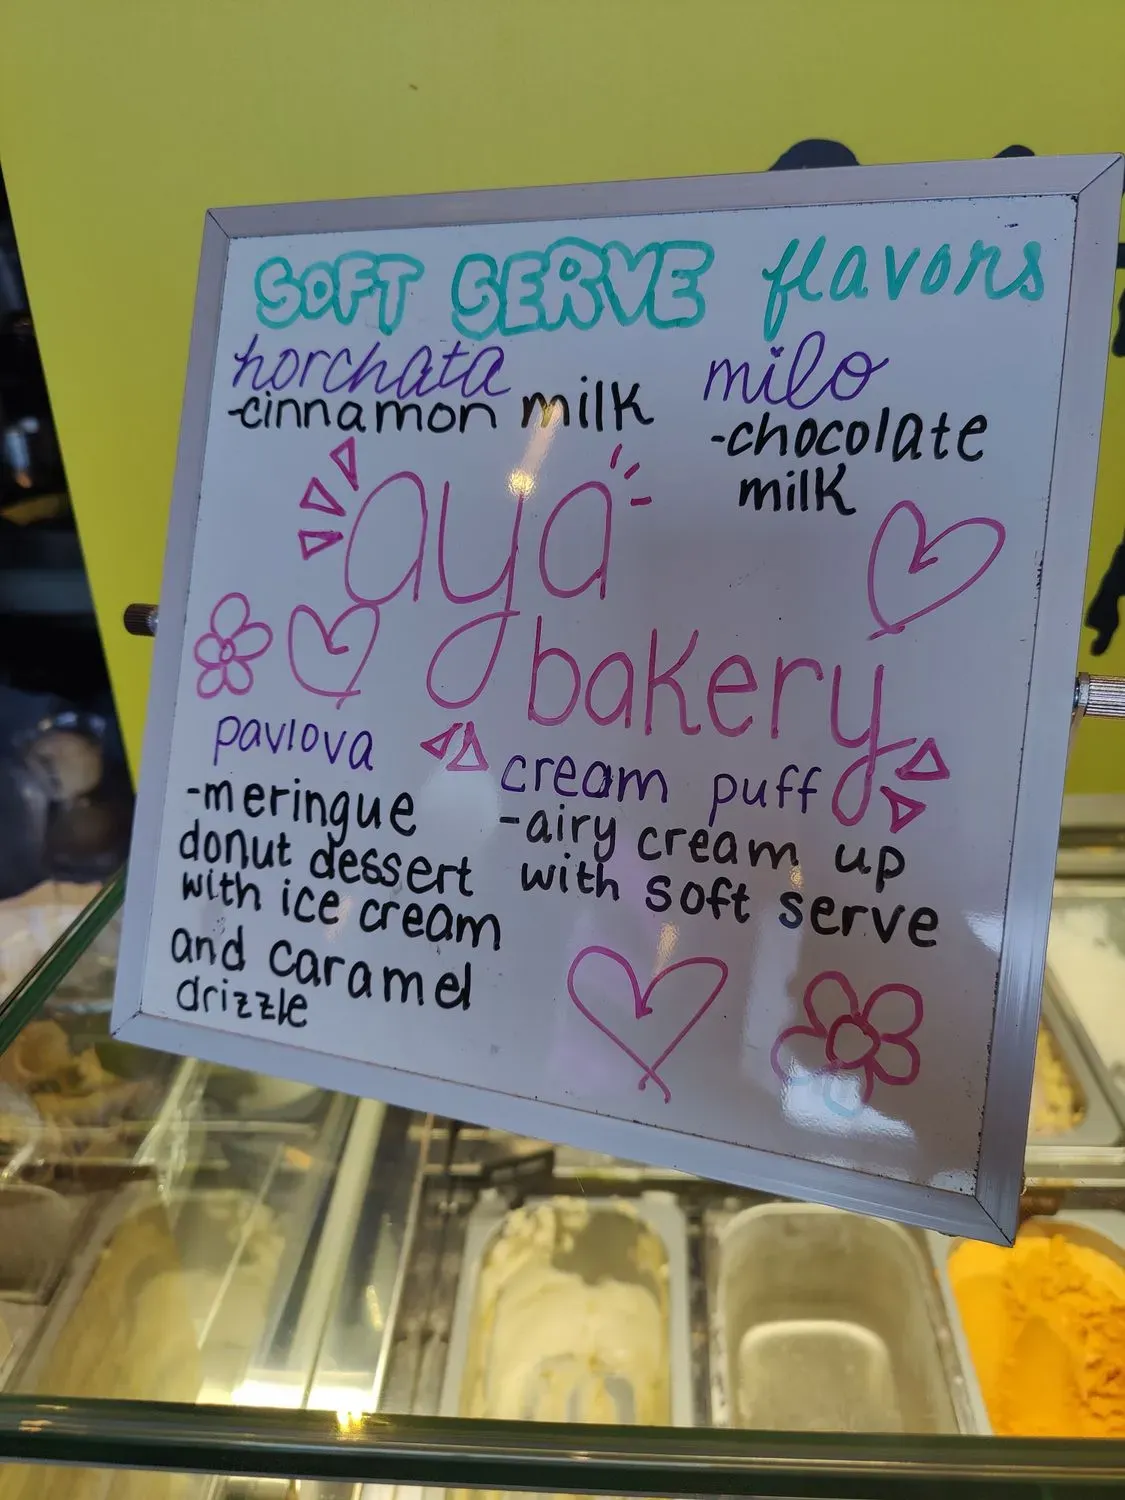 SOFT SERVE flavors
horchata
-cinnamon milk
milo
-chocolate
milk
aya
bakery
pavlova
-meringue
donut dessert
with ice cream
and caramel
drizzle
cream puff
-airy cream up
with soft serve